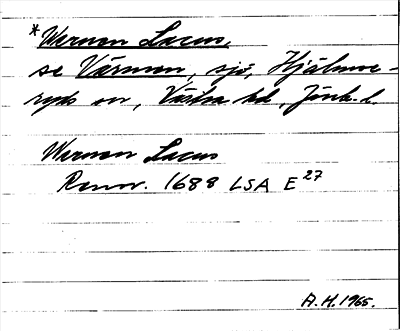 *Wernen Lacus,
se Värmen, sjö, Hjälmse-
ryds sn, Västra hd, Jönk. l.
Wernen Lacus
Renov. 1688 LSA E27
A.H. 1965.